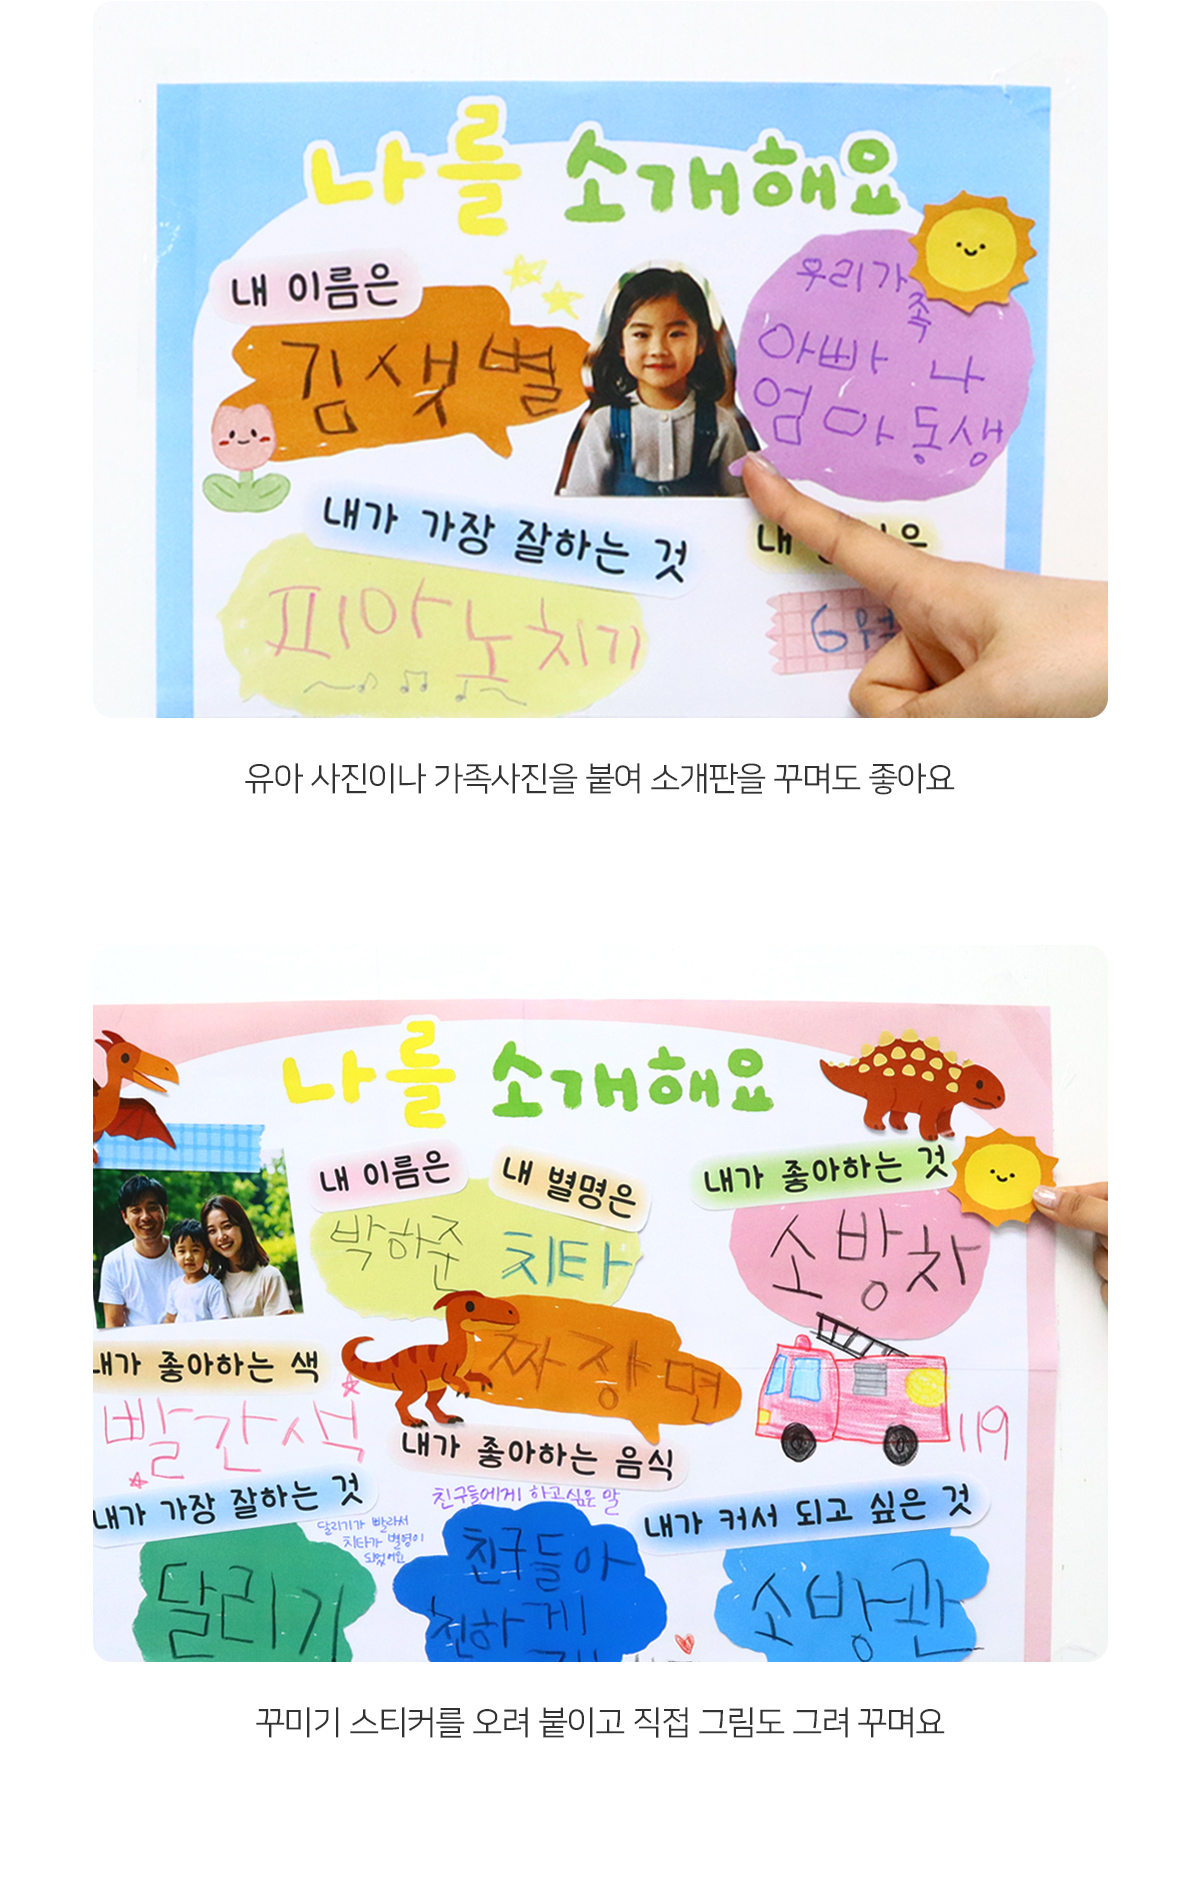 나를 소개해요
내 이름은
김샛별
우리가족
아빠 나
엄마 동생
내가 가장 잘하는 것
피아노 치기
내
6월
유아 사진이나 가족사진을 붙여 소개판을 꾸며도 좋아요
나를 소개해요
내 이름은
박하준
내 별명은
치타
내가 좋아하는 것
소방차
119
내가 좋아하는 색
빨간색
짜장면
내가 좋아하는 음식
내가 가장 잘하는 것
달리기가 빨라서
치타가 별명이
되었어요
달리기
친구들에게 하고싶은 말
친구들아
친하게
내가 커서 되고 싶은 것
소방관
꾸미기 스티커를 오려 붙이고 직접 그림도 그려 꾸며요